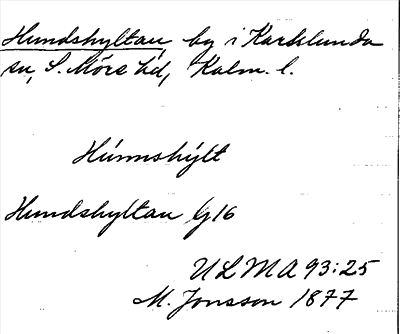 Hundshyltan by i Karlslunda
sn, S. Möre hd, Kalm. l.
Húnnshýlt
Hundshyltan G16
ULMA 93:25
M. Jonsson 1877